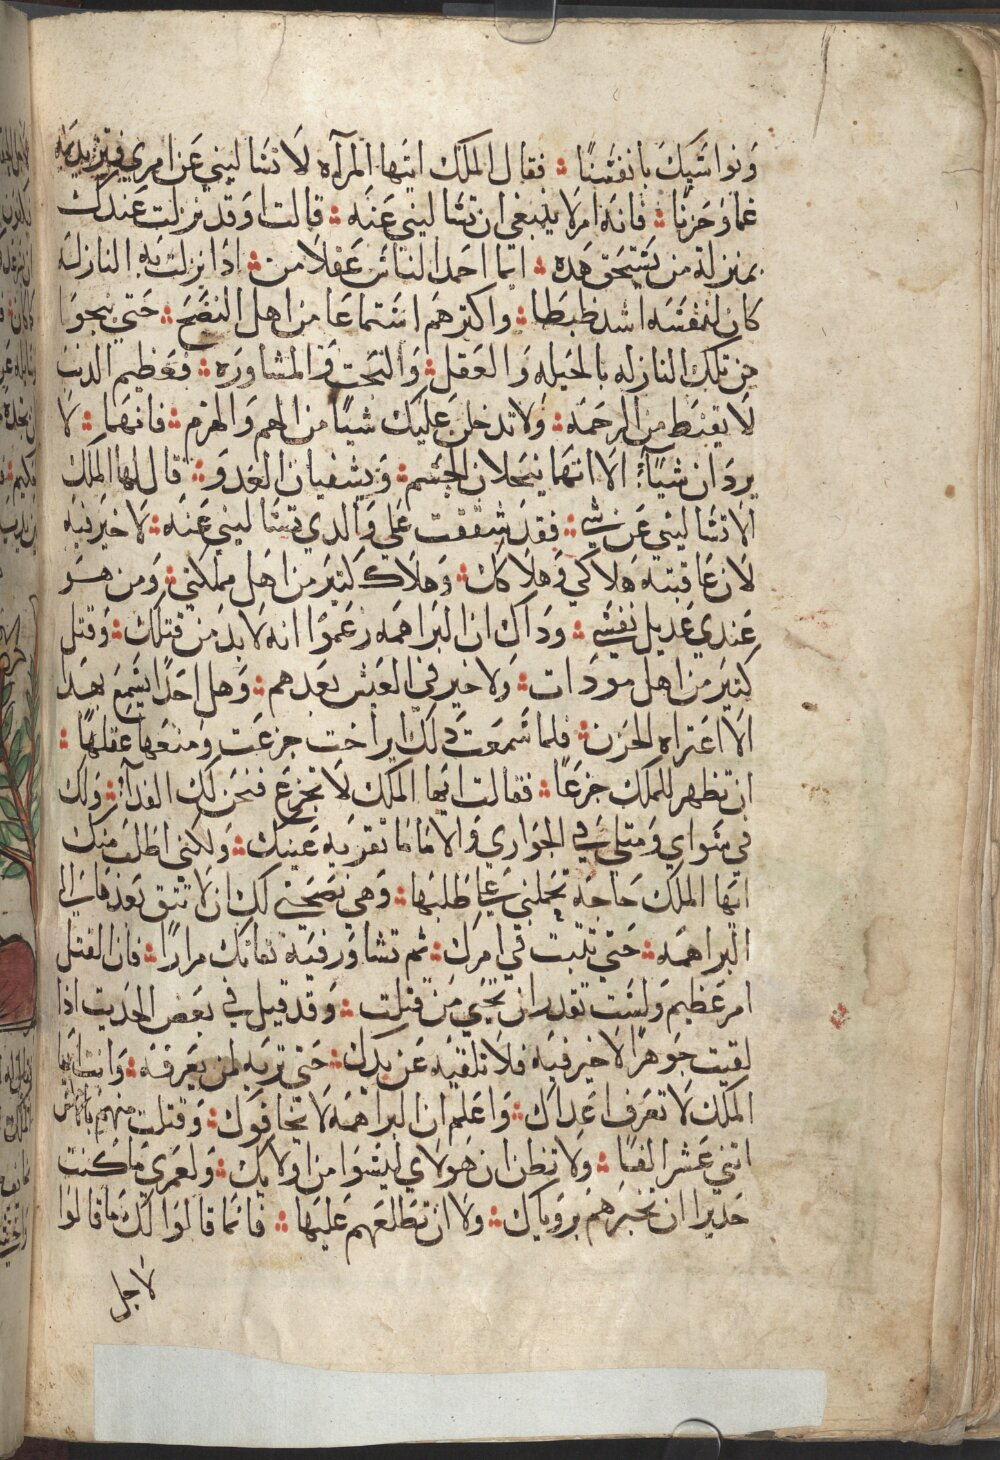 ونواسيك بانفسنا ؞ فقال الملك ايتها المرآه لا تساليني عن امري فتزيديه
غما وحزنا ؞ فانه امر لا ينبغي ان تساليني عنه ؞ قالت او قد نزلت عندك
بمنزلة من يستحق هذه ؞ انما احمد الناس عقلا من ؞ اذا نزلت به النازله
كان لنفسه اشد ظبطا ؞ واكثرهم استماعا من اهل النصح ؞ حتي ينجوا
من تلك النازله بالحيله والعقل ؞ والبحث والمشاوره ؞ فعظيم الذنب
لا يقنط من الرحمه ؞ ولا تدخلن عليك شيا من الهم والهرم ؞ فانهما ؞ لا
يردان شيآ ؞ الا انهما ينحلان الجسم ؞ ويشفيان العدو ؞ قال لها الملك
لا تساليني عن شي ؞ فقد شققت علي والذي تساليني عنه ؞ لا خير فيه
لان عاقبته هلاكي وهلاكك ؞ وهلاك كثير من اهل مملكتي ؞ ومن هو
عندي عديل نفسي ؞ وداك ان البراهمه زعموا انه لا بد من قتلك ؞ وقتل
كثير من اهل مودات ؞ ولا خير في العيش بعدهم ؞ وهل احدا يسمع بهدا
الا اعتراه الحزن ؞ فلما سمعت دلك ايراخت جزعت ومنعها عقلها ؞
ان تظهر للملك جزعا ؞ فقالت ايها الملك لا تجزع فنحن لك الفدآ ؞ ولك
في سواي ومثلي في الجواري والاماما تقر به عينك ؞ ولكني اطلب منك
ايها الملك حاجه تحملني علي طلبها ؞ وهي نصحتي لك ان لا تثق بعدها الي
البراهمه ؞ حتي تثبت في امرك ؞ ثم تشاور فيه ثقاتك مرارا ؞ فان القتل
امر عظيم ولست تقدر ان تحيي من قتلت ؞ وقد قيل في بعض الحديث اذا
لقيت جوهرا لا خير فيه فلا تلقيه عن يدك ؞ حتي تريه لمن يعرفه ؞ وانت ايها
الملك لا تعرف اعداك ؞ واعلم ان البراهمه لا يحافوك ؞ وقتلت منهم بالامس
اثني عشر الفا ؞ ولا تظن ان هولاي ليسوا من اوليك ؞ ولعمري ما كنت
جديرا ان تخبرهم بروياك ؞ ولا ان تطلعهم عليها ؞ فانما قالوا لك ما قالوا
لاجل